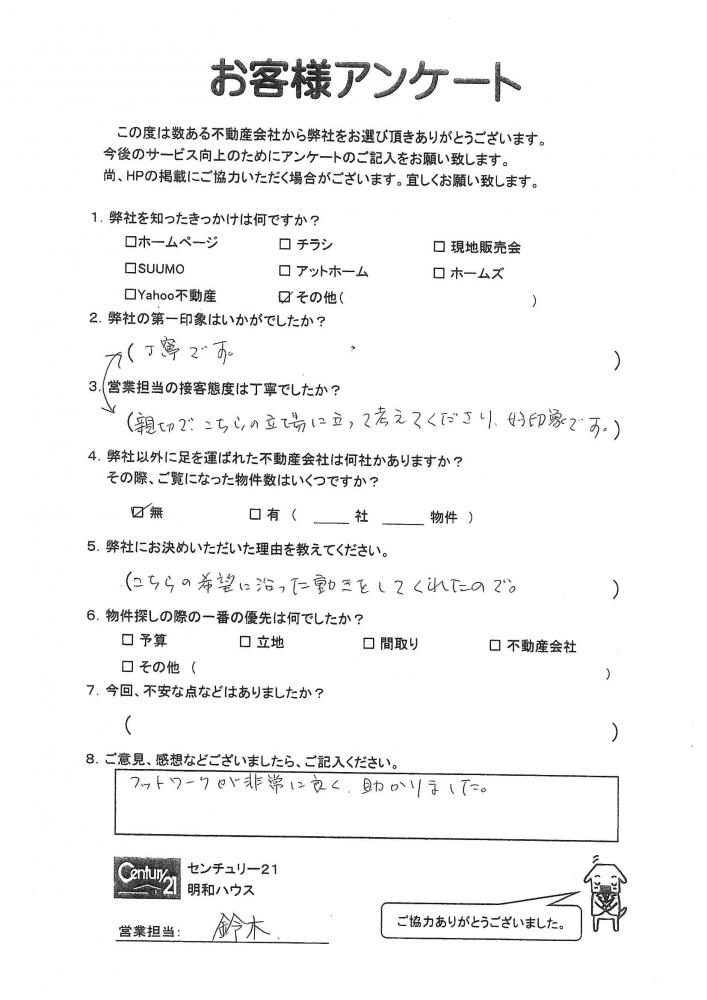 お客様アンケート
この度は数ある不動産会社から弊社をお選び頂きありがとうございます。
今後のサービス向上のためにアンケートのご記入をお願い致します。
尚、HPの掲載にご協力いただく場合がございます。宜しくお願い致します。
1. 弊社を知ったきっかけは何ですか？
□ホームページ □ チラシ □ 現地販売会
□SUUMO □ アットホーム □ ホームズ
□Yahoo不動産 ☑ その他( )
2. 弊社の第一印象はいかがでしたか？
(丁寧です。 )
3. 営業担当の接客態度は丁寧でしたか？
(親切で、こちらの立場に立って考えてくださり、好印象です。)
4. 弊社以外に足を運ばれた不動産会社は何社かありますか？
その際、ご覧になった物件数はいくつですか？
☑無 □ 有 ( ____ 社 ____ 物件 )
5. 弊社にお決めいただいた理由を教えてください。
(こちらの希望に沿った動きをしてくれたので。 )
6. 物件探しの際の一番の優先は何でしたか？
□ 予算 □ 立地 □ 間取り □ 不動産会社
□ その他 ( )
7. 今回、不安な点などはありましたか？
( )
8. ご意見、感想などございましたら、ご記入ください。
フットワークが非常に良く、助かりました。
Century 21 センチュリー21
明和ハウス
営業担当: 鈴木
ご協力ありがとうございました。